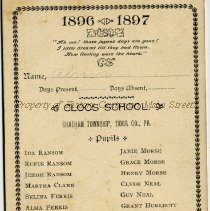 1896 1897
"Ah me! those joyous days are gone!
I little dreamt till they had flown,
How fleeting were the hours."
Name,
Days Present, Days Absent,
CLOOS SCHOOL
CHATHAM TOWNSHIP, TIOGA CO., PA.
Pupils
IDA RANSOM
RUFUS RANSOM
JESSIE RANSOM
MARTHA CLARK
SELINA FERRIS
ALMA FERRIS
JANIE MORSE
GRACE MORSE
HENRY MORSE
CLYDE NEAL
GUY NEAL
GRANT HURLBUTT